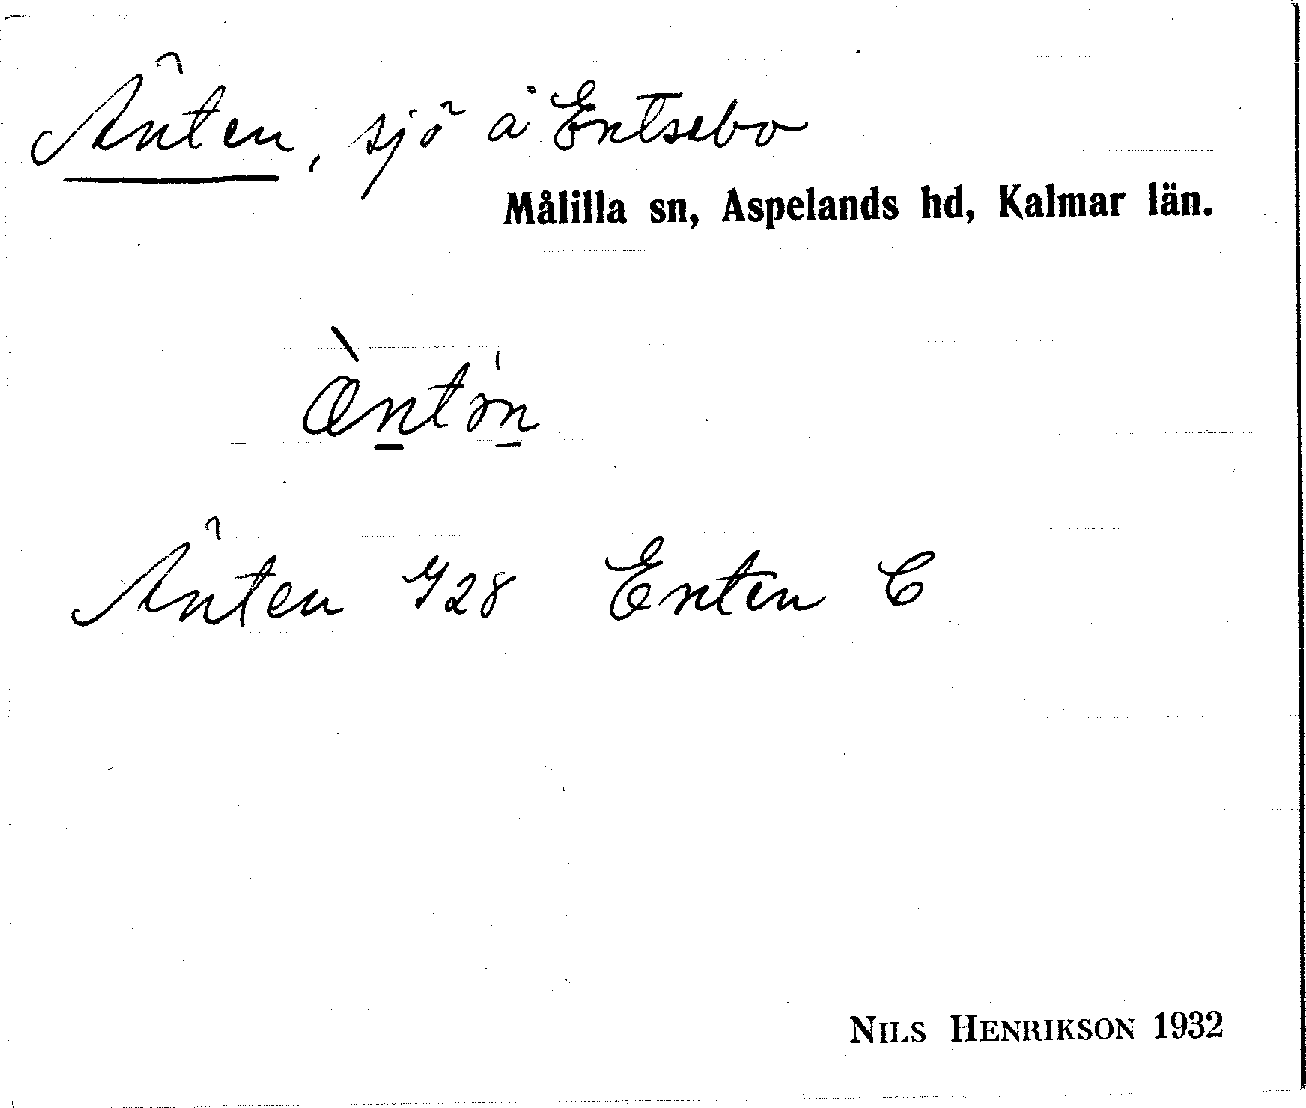 Änten, sjö å Entsebo
Målilla sn, Aspelands hd, Kalmar län.
æ̀ntön
Änten 428 Enten C
NILS HENRIKSON 1932